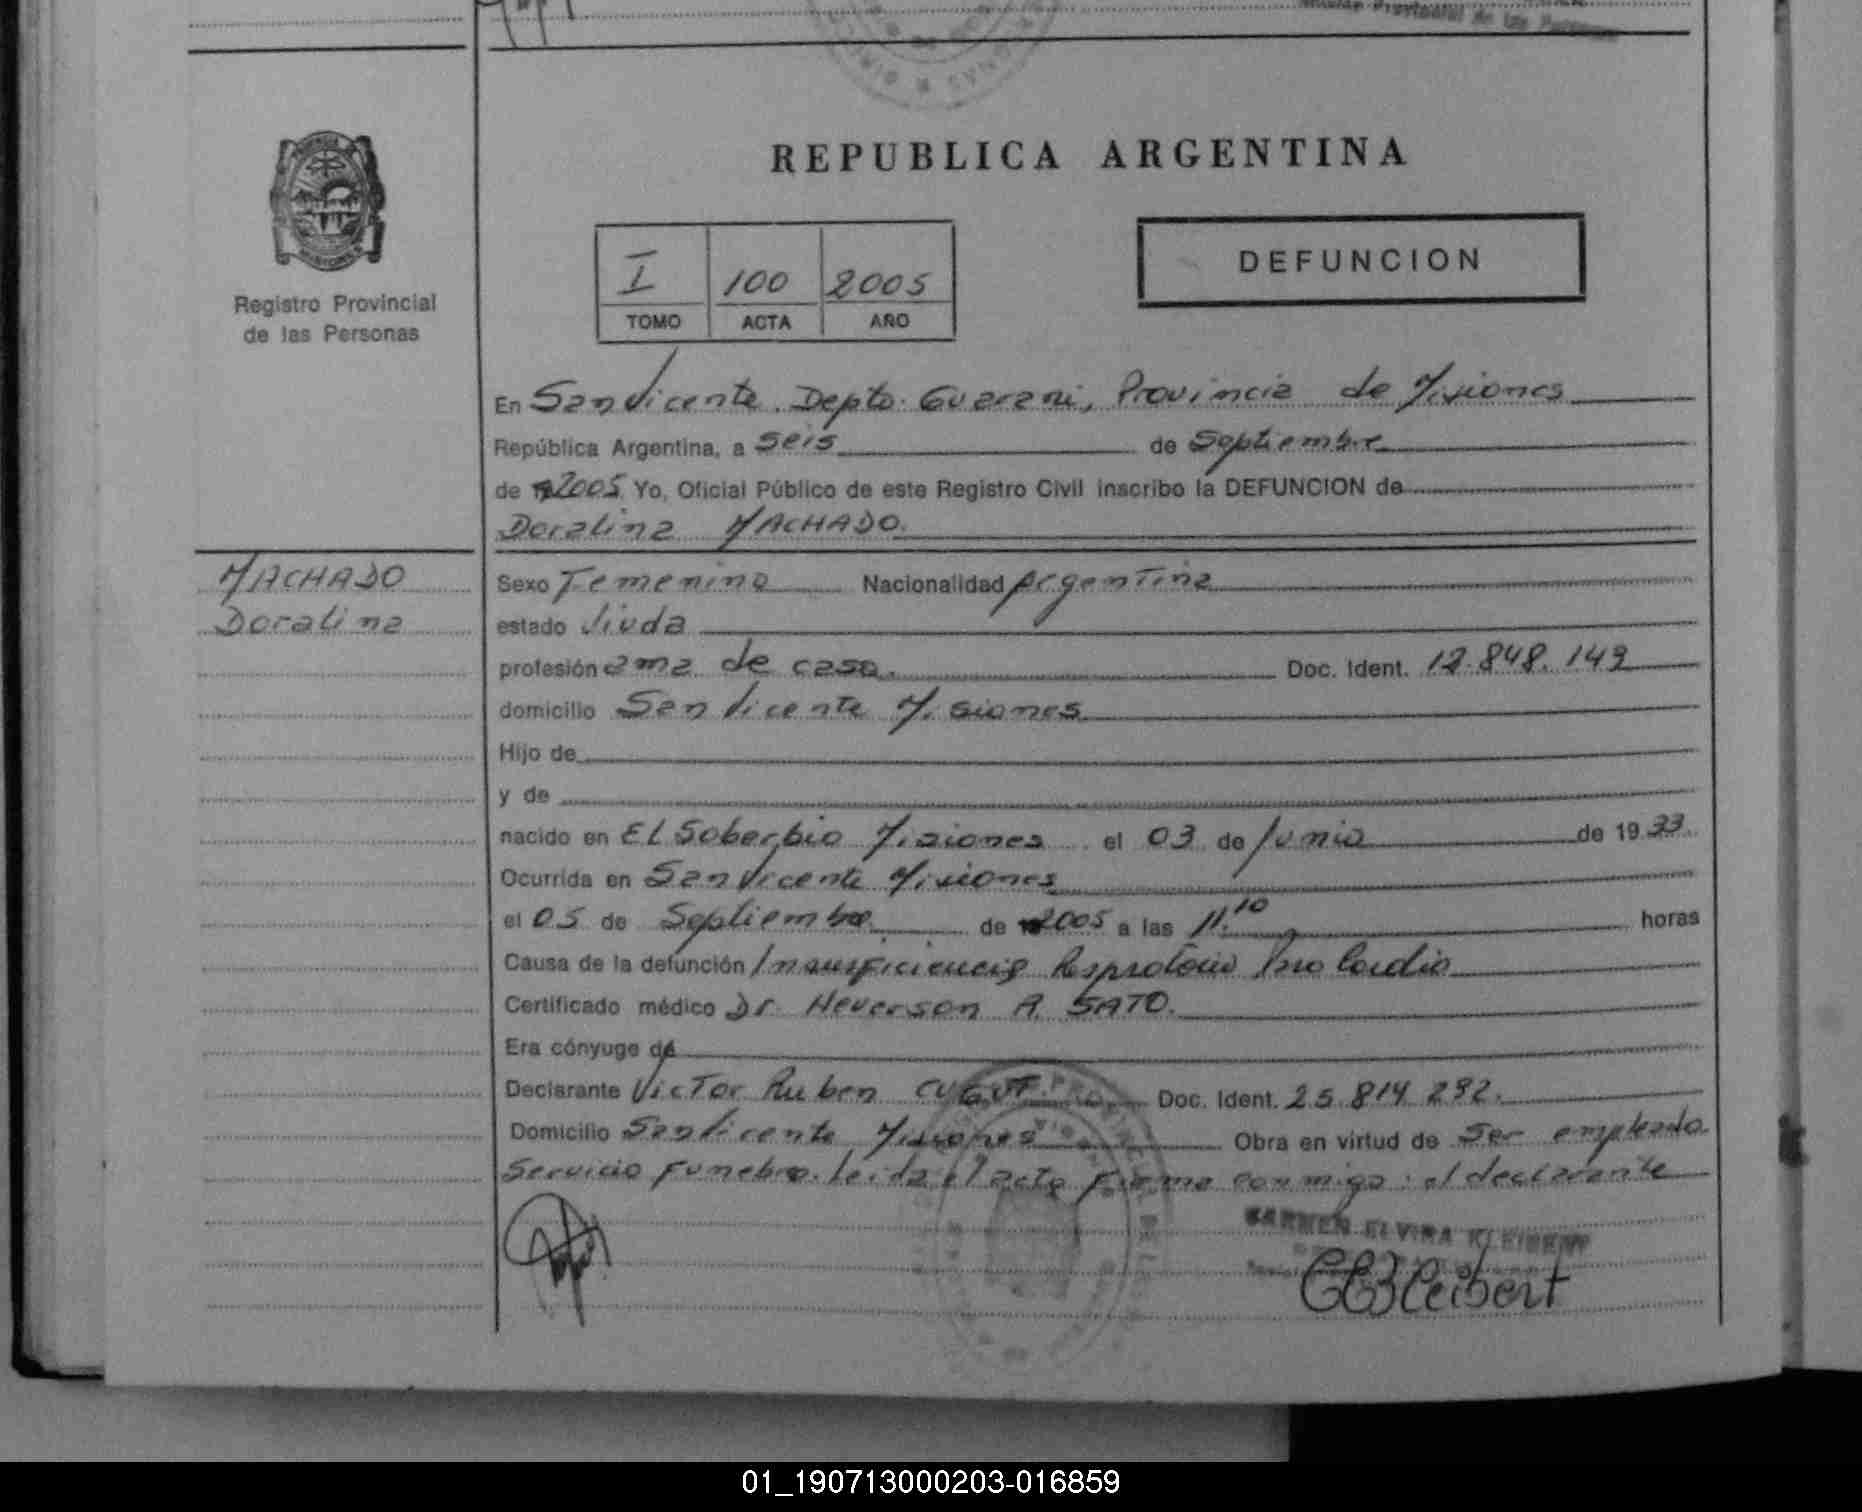 REPUBLICA ARGENTINA
Registro Provincial
de las Personas
I 100 2005
TOMO ACTA AÑO
DEFUNCION
En San Vicente. Depto. Guarani, Provincia de Misiones
República Argentina, a seis de Septiembre
de 2005 Yo, Oficial Público de este Registro Civil inscribo la DEFUNCION de
Doralina MACHADO.
MACHADO
Doralina
Sexo Femenino Nacionalidad Argentina
estado Viuda
profesión ama de casa. Doc. Ident. 12.848.149
domicilio San Vicente Misiones
Hijo de
y de
nacido en El Soberbio Misiones el 03 de Junio de 1933.
Ocurrida en San Vicente Misiones
el 05 de Septiembre de 2005 a las 11.10 horas
Causa de la defunción Insuficiencia
Certificado médico Dr. Heverson A. SATO.
Era cónyuge de
Declarante Victor Ruben Doc. Ident. 25.814.292.
Domicilio San Vicente Misiones Obra en virtud de ser empleado
Servicio Funebre. Leida el acta firma conmigo el declarante
CARMEN ELVIRA KLEIBERT
CEKleibert
01_190713000203-016859